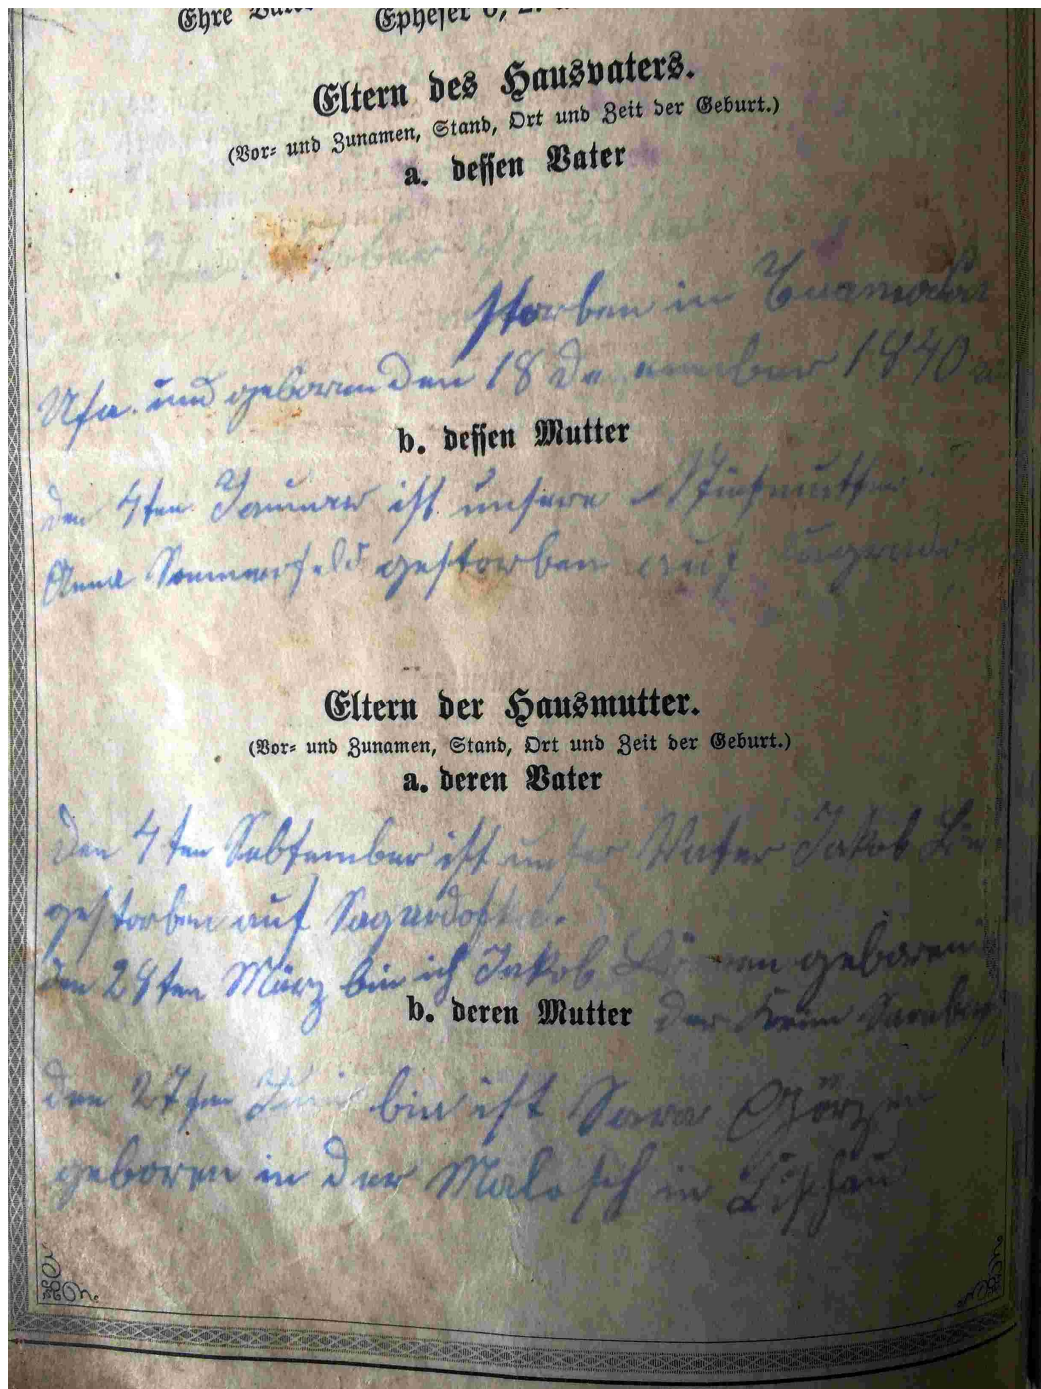 Ehre
Epheser 6, 2.
Eltern des Hausvaters.
(Vor- und Zunamen, Stand, Ort und Zeit der Geburt.)
a. dessen Vater
storben in
Ufa. und geboren den 18 dezember 1840
b. dessen Mutter
den 4ten Januar ist unsere Stiefmutter
Anna Sommerfeld gestorben auf
Eltern der Hausmutter.
(Vor- und Zunamen, Stand, Ort und Zeit der Geburt.)
a. deren Vater
Den 4ten Sebtember ist unser Vater Jakob
gestorben auf Sagradofka.
den 28ten März bin ich Jakob geboren
b. deren Mutter
der Krim
den 27ten Juni bin ist Sara Görzen
geboren in der Malosch in